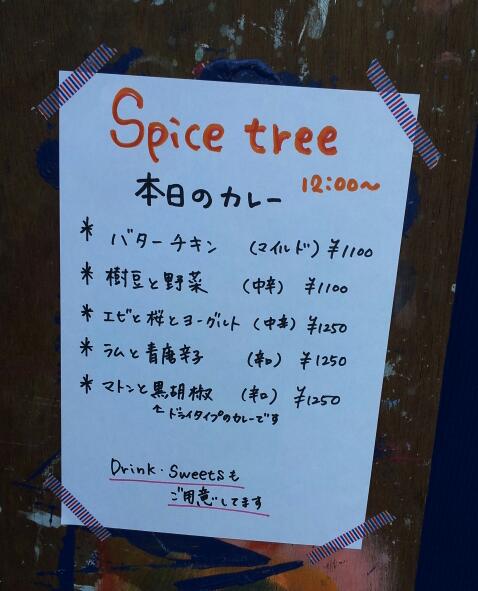 Spice tree
本日のカレー 12:00〜
* バターチキン (マイルド) ¥1100
* 樹豆と野菜 (中辛) ¥1100
* エビと桜とヨーグルト (中辛) ¥1250
* ラムと青唐辛子 (辛口) ¥1250
* マトンと黒胡椒 (辛口) ¥1250
←ドライタイプのカレーです
Drink・Sweetsも
ご用意してます